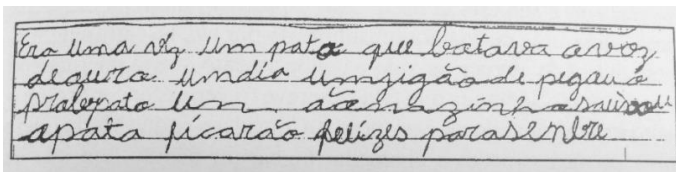 Era uma viz um pata que batava avoz
degura umdia umgigão de pegau a
um ãomazinho saivou
apata ficarão felizes parasenbre